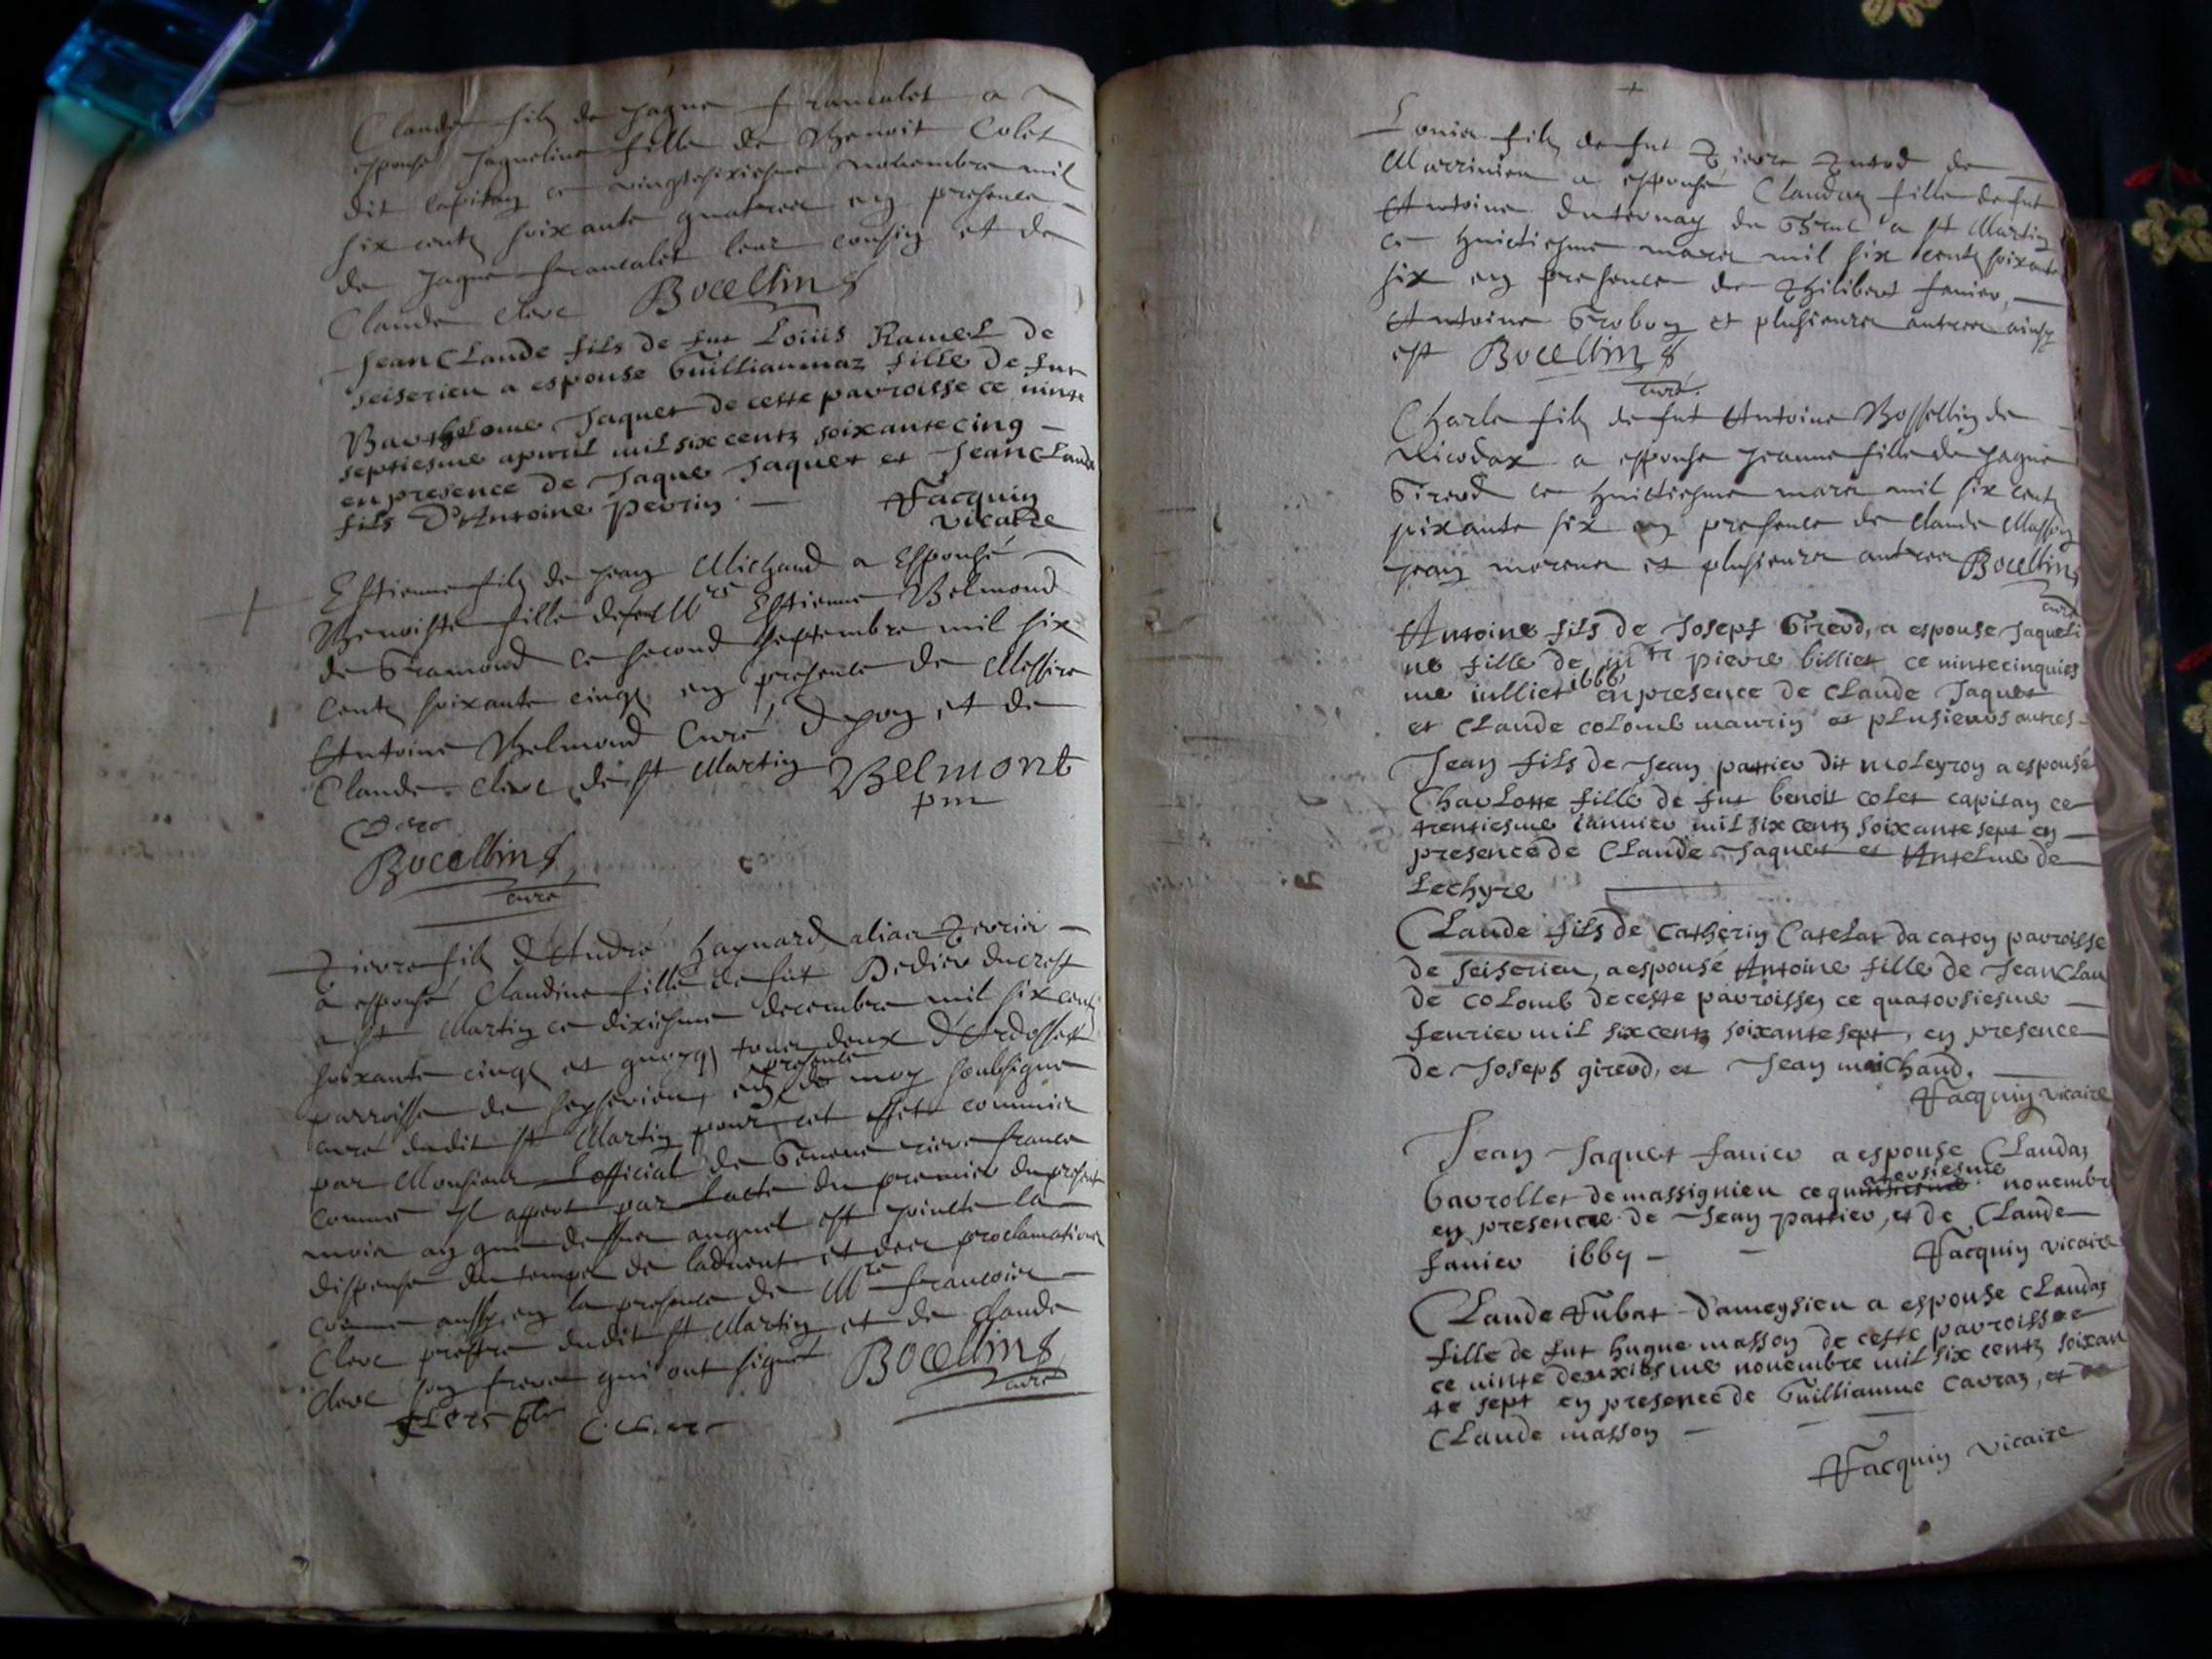 Claude filz de Jaque francalet a
espousé Jaqueline fille de Benoit Colet
dit capitan ce vingtsixiesme novembre mil
six centz soixante quattre en presence
de Jaque francalet leur cousin et de
Claude Clerc Bocellins
Jean Claude fils de fut Loüis Ramel de
seiserieu a espouse Guilliaumaz fille de fut
Barthelome Jaquet de cette parroisse ce uint
septiesme apuril mil six centz soixante cinq
en presence de Jaque Jaquet et Jean Claude
fils d'Antoine perrin Jacquin
vicaire
Estienne filz de Jean Michaud a espousé
Benoiste fille de Mre Estienne Belmond
de Gramond ce second septembre mil six
centz soixante cinq en presence de Messire
Antoine Belmond Curé et de
Claude Clerc de st Martin Belmont
Bocellins
curé
Pierre filz d'André Haynard alias Perrier
a espousé Claudine fille de fut Dedier ducrest
a st Martin ce dixiesme decembre mil six centz
soixante cinq et tous deux d'Ardosset
presence
parroisse de seyserieu, en de moy soubsigne
curé dudit st Martin pour cet effet commis
par Monsieur L'official de Geneve riere france
comme il appert par Lacte du premier du present
mois auquel est joincte la
dispense du temps de ladvent et des proclamations
comme aussy en la presence de Mre francois
Clerc prestre dudit st Martin et de Claude
Clerc son frere qui ont signé Bocellins
curé
Louis filz de fut Pierre de
Marrinieu a espousé Claudaz fille de fut
Antoine duternay de a st Martin
ce huictiesme mars mil six centz soixante
six en presence de Philibert fanier,
Antoine Grobon et plusieurs autres ainsy
est Bocellins
curé.
Charle filz de fut Antoine Bossellin de
a espousé Jeanne fille de Jaque
Girerd ce huictiesme mars mil six centz
soixante six en presence de Claude Masson
Jean morene et plusieurs autres Bocellins
curé
Antoine fils de Joseph Girerd, a espouse Jaqueli
ne fille de mtr pierre billiet ce uintecinquies
me iulliet 1666 en presence de Claude Jaquet
et Claude colomb maurin et plusieurs autres
Jean fils de Jean pattier dit moleyron a espousé
Charlotte fille de fut benoit colet capitan ce
trentiesme iannier mil six centz soixante sept en
presence de Claude Jaquet et Antelme de
Lechyre
Claude fils de Catherin Catelat da caton parroisse
de seiserieu, a espousé Antoine fille de Jean Clau
de colomb de ceste parroisse ce quatorsiesme
feurier mil six centz soixante sept, en presence
de Joseph girerd, et Jean michaud.
Jacquin vicaire
Jean Jaquet fanier a espouse Claudaz
barrollet de massignieu ce quatorsiesme novembre
en presence de Jean pattier, et de Claude
fanier 1667 Jacquin vicaire
Claude Fubat d'ameysieu a espouse Claudaz
fille de fut hugue masson de ceste parroisse
ce uinte deuxiesme nouembre mil six centz soixan
te sept en presence de Guilliaume Carraz, et de
Claude masson
Jacquin vicaire